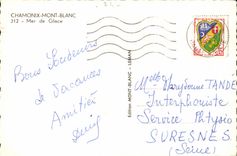 CHAMONIX-MONT-BLANC
312 - Mer de Glace
Bons Souvenirs
de Vacances
Amitiés
Edition MONT-BLANC - LEMAN
TANDE
Interphoniste
Service Phtysio
SURESNES
(Seine)